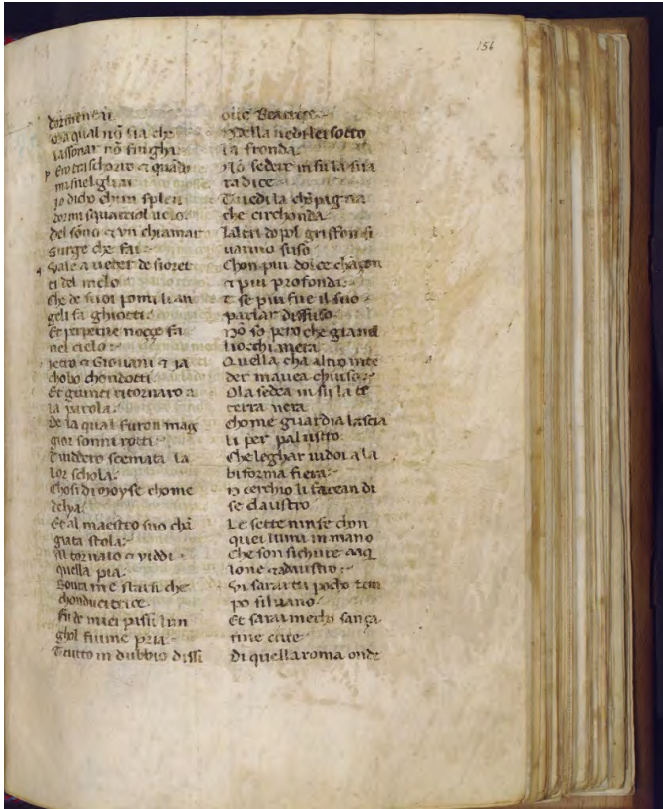 156
dormentai
Ma qual nō sia che
lassonar nō fingha
Ꝑero traschorro & quādo
mi suegliai
Jo dicho chun splen
dor mi squarciol uelo
del sōno & vn chiamar
surge che fai
Quale a ueder de fioret
ti del melo
Che de suoi pomi li an
geli fa ghiotti
Et perpetue nocçe fa
nel cielo
Pietro & Giouani & Ja
chobo chondotti
Et giunti ritornaro a
la parola
De la qual furon mag
gior sonni rotti
Et uiddero scemata la
lor schola
Chosi di moyse chome
delya
Et al maestro suo chā
giata stola
Tal tornaio & viddi
quella pia
Soura me starsi che
chonducitrice
Fu de miei passi lun
ghol fiume pria
E tutto in dubbio dissi
oue Beatrice
Et ella uedi lei sotto
la fronda
Nō sedere in su la sua
radice
Et uedi la chōpagnia
che circhonda
Laltri dopol griffon si
uanno suso
Chon piu dolce chāçon
& piu profonda
Et se piu fue il suo
parlar diffuso
Nō so pero che gia nel
liocchi mera
Quella cha altro inte
der mauea chiuso
Sola sedea in su la te
terra uera
Chome guardia lascia
li per palustro
Che leghar uidi a la
biforma fiera
In cerchio li facean di
se claustro
Le sette ninfe chon
quei lumi in mano
Che son sichure daq
lone & daustro
Qui sarai tu pocho tem
po siluano
Et sarai mecho sança
fine ciue
Di quella roma onde